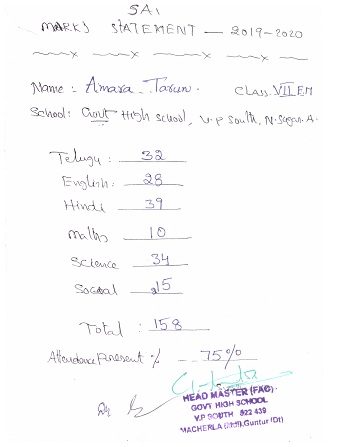 SA1
MARKS STATEMENT — 2019-2020
Name : Amara Tarun. Class. VII EM
School: Govt High school, V.P South, N.Sagar. A.
Telugu : 32
English: 28
Hindi 39
Maths 10
Science 34
Social 15
Total : 158
Attendance Present % 75%
HEAD MASTER (FAC)
GOVT HIGH SCHOOL
V.P SOUTH 522 439
MACHERLA (Guntur (Dt)